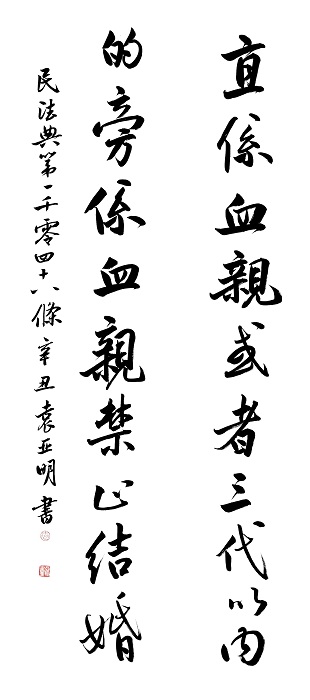 直係血親或者三代以内
的旁係血親禁止結婚
民法典第一千零四十八條辛丑袁亚明書